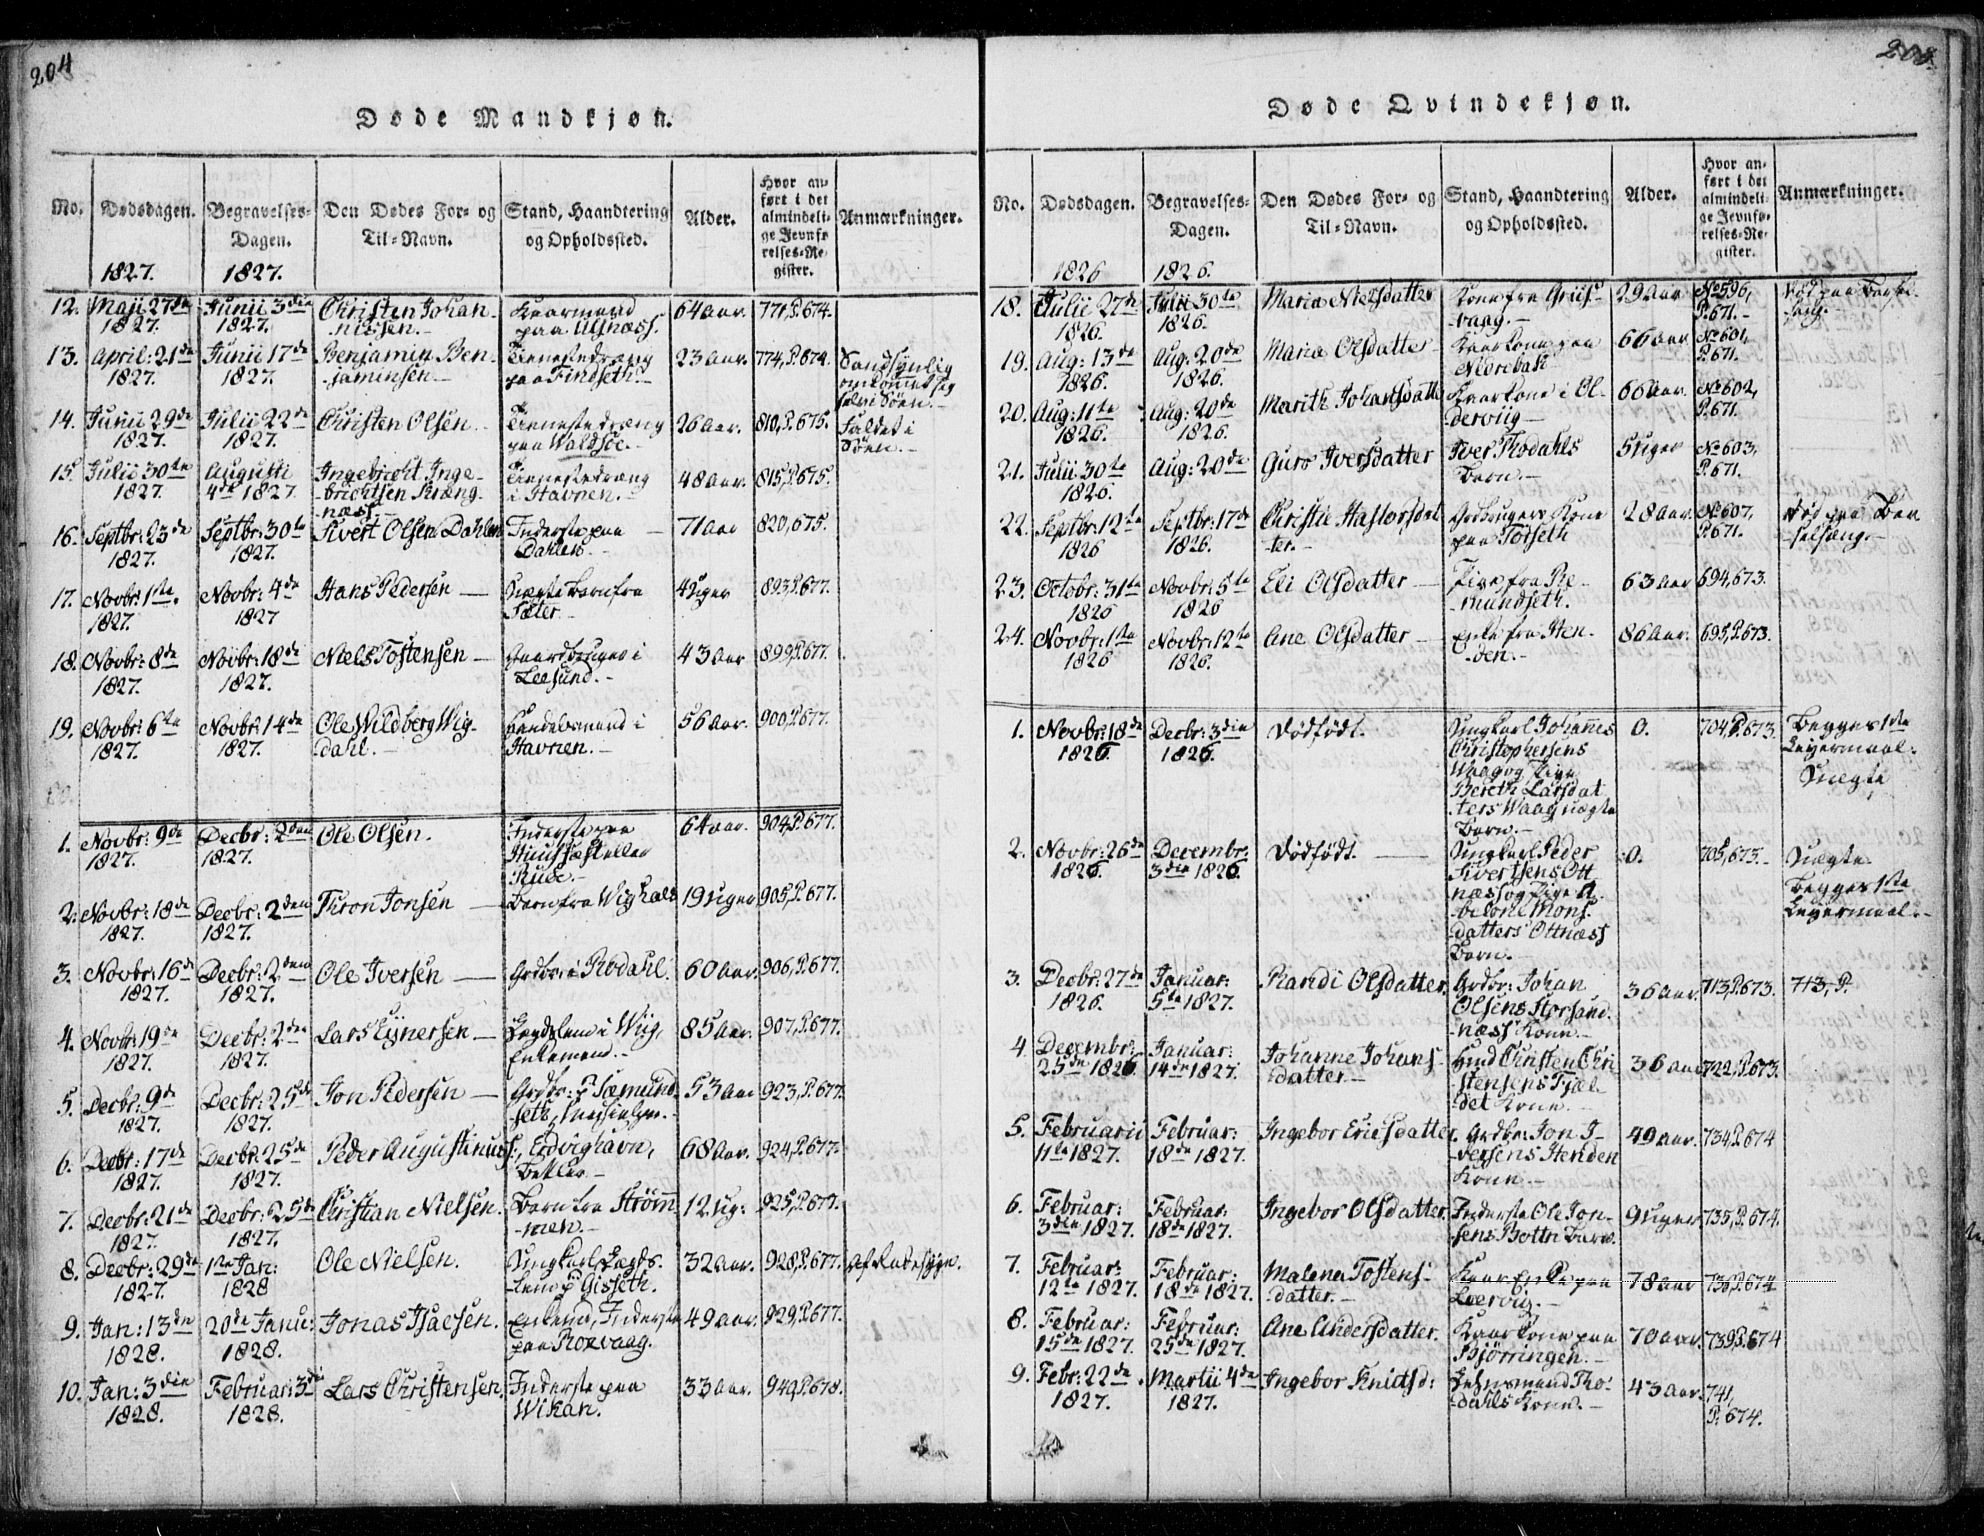 204
Døde Mandkjøn.
No.
Dødsdagen.
Begravelses-
Dagen.
Den Dødes For- og
Til-Navn.
Stand, Haandtering
og Opholdssted.
Alder.
Hvor an-
ført i det
almindeli-
ge Jevnfø-
relses-Re-
gister.
Anmærkninger.
1827.
1827.
12. Maii 27de 1827. Junii 3die 1827. Christen Johan-
nissen. Kaarmand
paa Ulsnæss. 64 aar. 771, P. 674.
13. April: 21de 1827. Junii 17de 1827. Benjamin Ben-
jaminsen. Tienestedræng
paa Findseth. 23 aar. 774, P. 674. Sandsynlig
omkommet sig
selv i Søen.
14. Junii 29de 1827. Julii 22de 1827. Christen Olsen. Tienestedræng
paa Waldsøe. 26 aar. 810, P. 675. Faldet i
Søen.
15. Julii 30te 1827. Augusti
4de 1827. Ingebrecht Inge-
brichtsen Kræng-
næss. Tienestedræng
i Havnen. 48 aar. 815, P. 675.
16. Septbr: 23de 1827. Septbr: 30te 1827. Sivert Olsen Dahlen Inderste paa
Dahlen. 71 aar 820, 675.
17. Novbr: 1ste 1827. Novbr: 4de 1827 Hans Pedersen Uægte Barn fra
Sæter. 4 Uger 893, P. 677.
18. Novbr: 8de 1827. Novbr: 18de 1827. Niels Tostensen Gaardbruger i
Leesund. 43 aar 899, P. 677.
19. Novbr: 6te 1827. Novbr: 14de 1827. Ole Wildberg Wig-
dahl. Handelsmand i
Havnen. 56 aar. 900, P. 677.
1. Novbr: 9de 1827. Decbr: 2den 1827. Ole Olsen. Inderste paa

Ruse. 64 aar. 904, P. 677.
2. Novbr: 18de 1827. Decbr: 2den 1827. Thron Jonsen Barn fra Wighals 19 uger 905, P. 677.
3. Novbr: 16de 1827. Decbr: 2den 1827. Ole Iversen Grdbr: i Rodahl. 60 aar. 906, P. 677.
4. Novbr: 19de 1827. Decbr: 2den 1827. Lars Ejnersen Lægdslem i Wiig,
Enkemand. 85 aar. 907, P. 677.
5. Decbr: 9de 1827. Decbr: 25de 1827. Jon Pedersen Grdbr: p. Sæmund-
seth, 53 aar 923, P. 677.
6. Decbr: 17de 1827. Decbr: 25de 1827. Peder Augustinuss:, Edvighavn,
Betler. 68 aar. 924, P. 677.
7. Decbr: 21de 1827. Decbr: 25de 1827. Christian Nielsen. Barn fra Strøm-
men. 12 ug: 925, P. 677.
8. Decbr: 29de 1827. 1ste Jan: 1828 Ole Nielsen. Ungkarl, Lægds-
lem p. Gisseth. 32 aar. 928, P. 677. af Radesyge.
9. Jan: 13de 1828. 20de Janu: 1828. Jonas Isacsen. Enkemd, Inderste
paa Roxvaag. 49 aar. 929, P. 677.
10. Jan: 3die 1828. Februar: 3die 1828. Lars Christensen. Inderste paa
Wikan. 33 aar. 940, P. 678.
Døde Qvindekjøn.
No.
Dødsdagen.
Begravelses-
Dagen.
Den Dødes For- og
Til-Navn.
Stand, Haandtering
og Opholdssted.
Alder.
Hvor an-
ført i det
almindeli-
ge Jevnfø-
relses-Re-
gister.
Anmærkninger.
1826
1826.
18. Julii 27de 1826. Julii 30te 1826. Maria Nielsdatter Kone fra Griis-
vaag. 29 aar No 596,
P. 671. Død paa Barsel-
seng.
19. Aug: 13de 1826. Aug: 20de 1826. Maria Olsdatter Kaarkone paa
Nærebak 66 aar No 601,
P. 671.
20. Aug: 11te 1826. Aug: 20de 1826. Marith Johansdatter Kaarkone i Ol-
derviig 66 aar. No 602,
P. 671.
21. Julii 30te 1826. Aug: 20de Guro Iversdatter Iver Rodahls
Barn. 5 Uger No 603,
P. 671.
22. Septbr: 12te 1826 Septbr: 17de 1826. Christie Haftorsdat-
ter. Grdbrugers Kone
paa Torseth 28 aar. No 607,
P. 671. Død paa Bar-
selseng.
23. Octobr: 31te 1826 Novbr: 5te 1826 Eli Olsdatter Pige fra Re-
mundseth. 63 aar 694, 673.
24. Novbr: 1ste 1826 Novbr: 12te 1826. Ane Olsdatter Enke fra Sten-
den. 86 aar. 695, P. 673.
1. Novbr: 18de 1826. Decbr: 3die 1826. Dødfødt. Ungkarl Johannes
Christophersens
Waag og Pige
Bereth Larsdat-
ters Waag uægte
Barn. 0. 704, P. 673. Begges 1ste
Leyermaal.
Uægte
2. Novbr: 26de 1826. Decembr:
3die 1826. Dødfødt. Ungkarl Peder
Sivertsens Ott-
næss og Pige A-
belone Mons-
datters Ottnæss
Barn. 0. 705, 673. Uægte.
Begges 1ste
Leyermaal.
3. Decbr: 27de 1826. Januar:
5te 1827. Randi Olsdatter. Grdbr: Johan
Olsens Storsand-
næss Kone. 36 aar. 713, P. 673. 713, P.
4. Decembr:
25de 1826 Januar:
14de 1827. Johanne Johans-
datter. Husmd Christen Chri-
stensens Fjel-
det Kone. 36 aar 722, P. 673.
5. Februarii
11te 1827. Februar:
18de 1827. Ingebor Ericsdatter. Grdbr: Jon I-
versens Stenden
Kone. 49 aar. 734, P. 674
6. Februar:
3die 1827. Februar:
18de 1827. Ingebor Olsdatter. Inderste Ole Jon-
sens Bottn Barn. 9 uger 735, P. 674.
7. Februar:
12te 1827. Februar:
18de 1827. Malena Tostens-
datter. Kaar Enke paa
Leervig. 78 aar 736, P. 674
8. Februar:
15de 1827. Februar:
25de 1827. Ane Andersdatter. Kaarkone paa
Bjørringen. 70 aar. 739, P. 674
9. Febr: 22de 1827. Martii 4de 1827. Ingebor Knudsd: Lehnsmand Tho-
dahls Kone. 43 aar. 741,
P. 674.